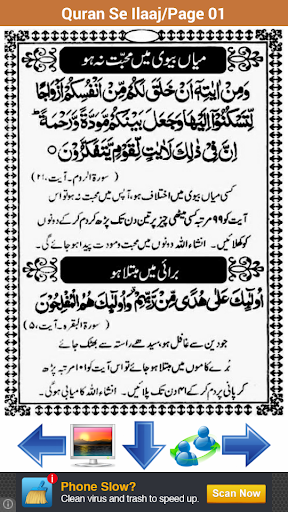 Quran Se Ilaaj/Page 01
میاں بیوی میں محبّت نہ ہو
وَمِنْ اٰيٰتِهٖٓ اَنْ خَلَقَ لَكُمْ مِّنْ اَنْفُسِكُمْ اَزْوَاجًا
لِّتَسْكُنُوْٓا اِلَيْهَا وَجَعَلَ بَيْنَكُمْ مَّوَدَّةً وَّرَحْمَةً ؕ
اِنَّ فِيْ ذٰلِكَ لَاٰيٰتٍ لِّقَوْمٍ يَّتَفَكَّرُوْنَ
(سورۃ الروم۔ آیت، ۲۱)
کسی میاں بیوی میں اختلاف ہو، آپس میں محبت نہ ہو تو اس
آیت کو ۹۹ مرتبہ کسی میٹھی چیز پر تین دن تک پڑھ کر دم کرکے دونوں
کو کھلائیں۔ انشاء اللہ دونوں میں محبت ومودت پیدا ہو جائے گی۔
برائی میں مبتلا ہو
اُولٰٓئِكَ عَلٰى هُدًى مِّنْ رَّبِّهِمْ وَاُولٰٓئِكَ هُمُ الْمُفْلِحُوْنَ
(سورۃ البقرہ۔ آیت، ۵)
جو دین سے غافل ہو، سیدھے راستہ سے بھٹک جائے
بُرے کاموں میں مبتلا ہو جائے تو اس آیت کو ۱۰۱ مرتبہ پڑھ
کر پانی پر دم کر کے ۴۱ دن تک پلائیں۔ انشاء اللہ کامیابی ہوگی۔
Phone Slow?
Clean virus and trash to speed up.
Scan Now